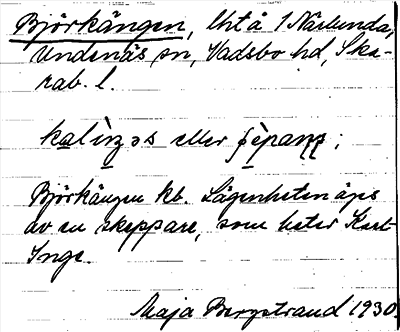 Björkängen, lht å 1 Näslunda,
Undenäs sn, Vadsbo hd, Ska-
rab. l.
eller
Björkängen kb. Lägenheten äges
av en skeppare, som heter Karl
Inge.
Maja Bergstrand 1930.